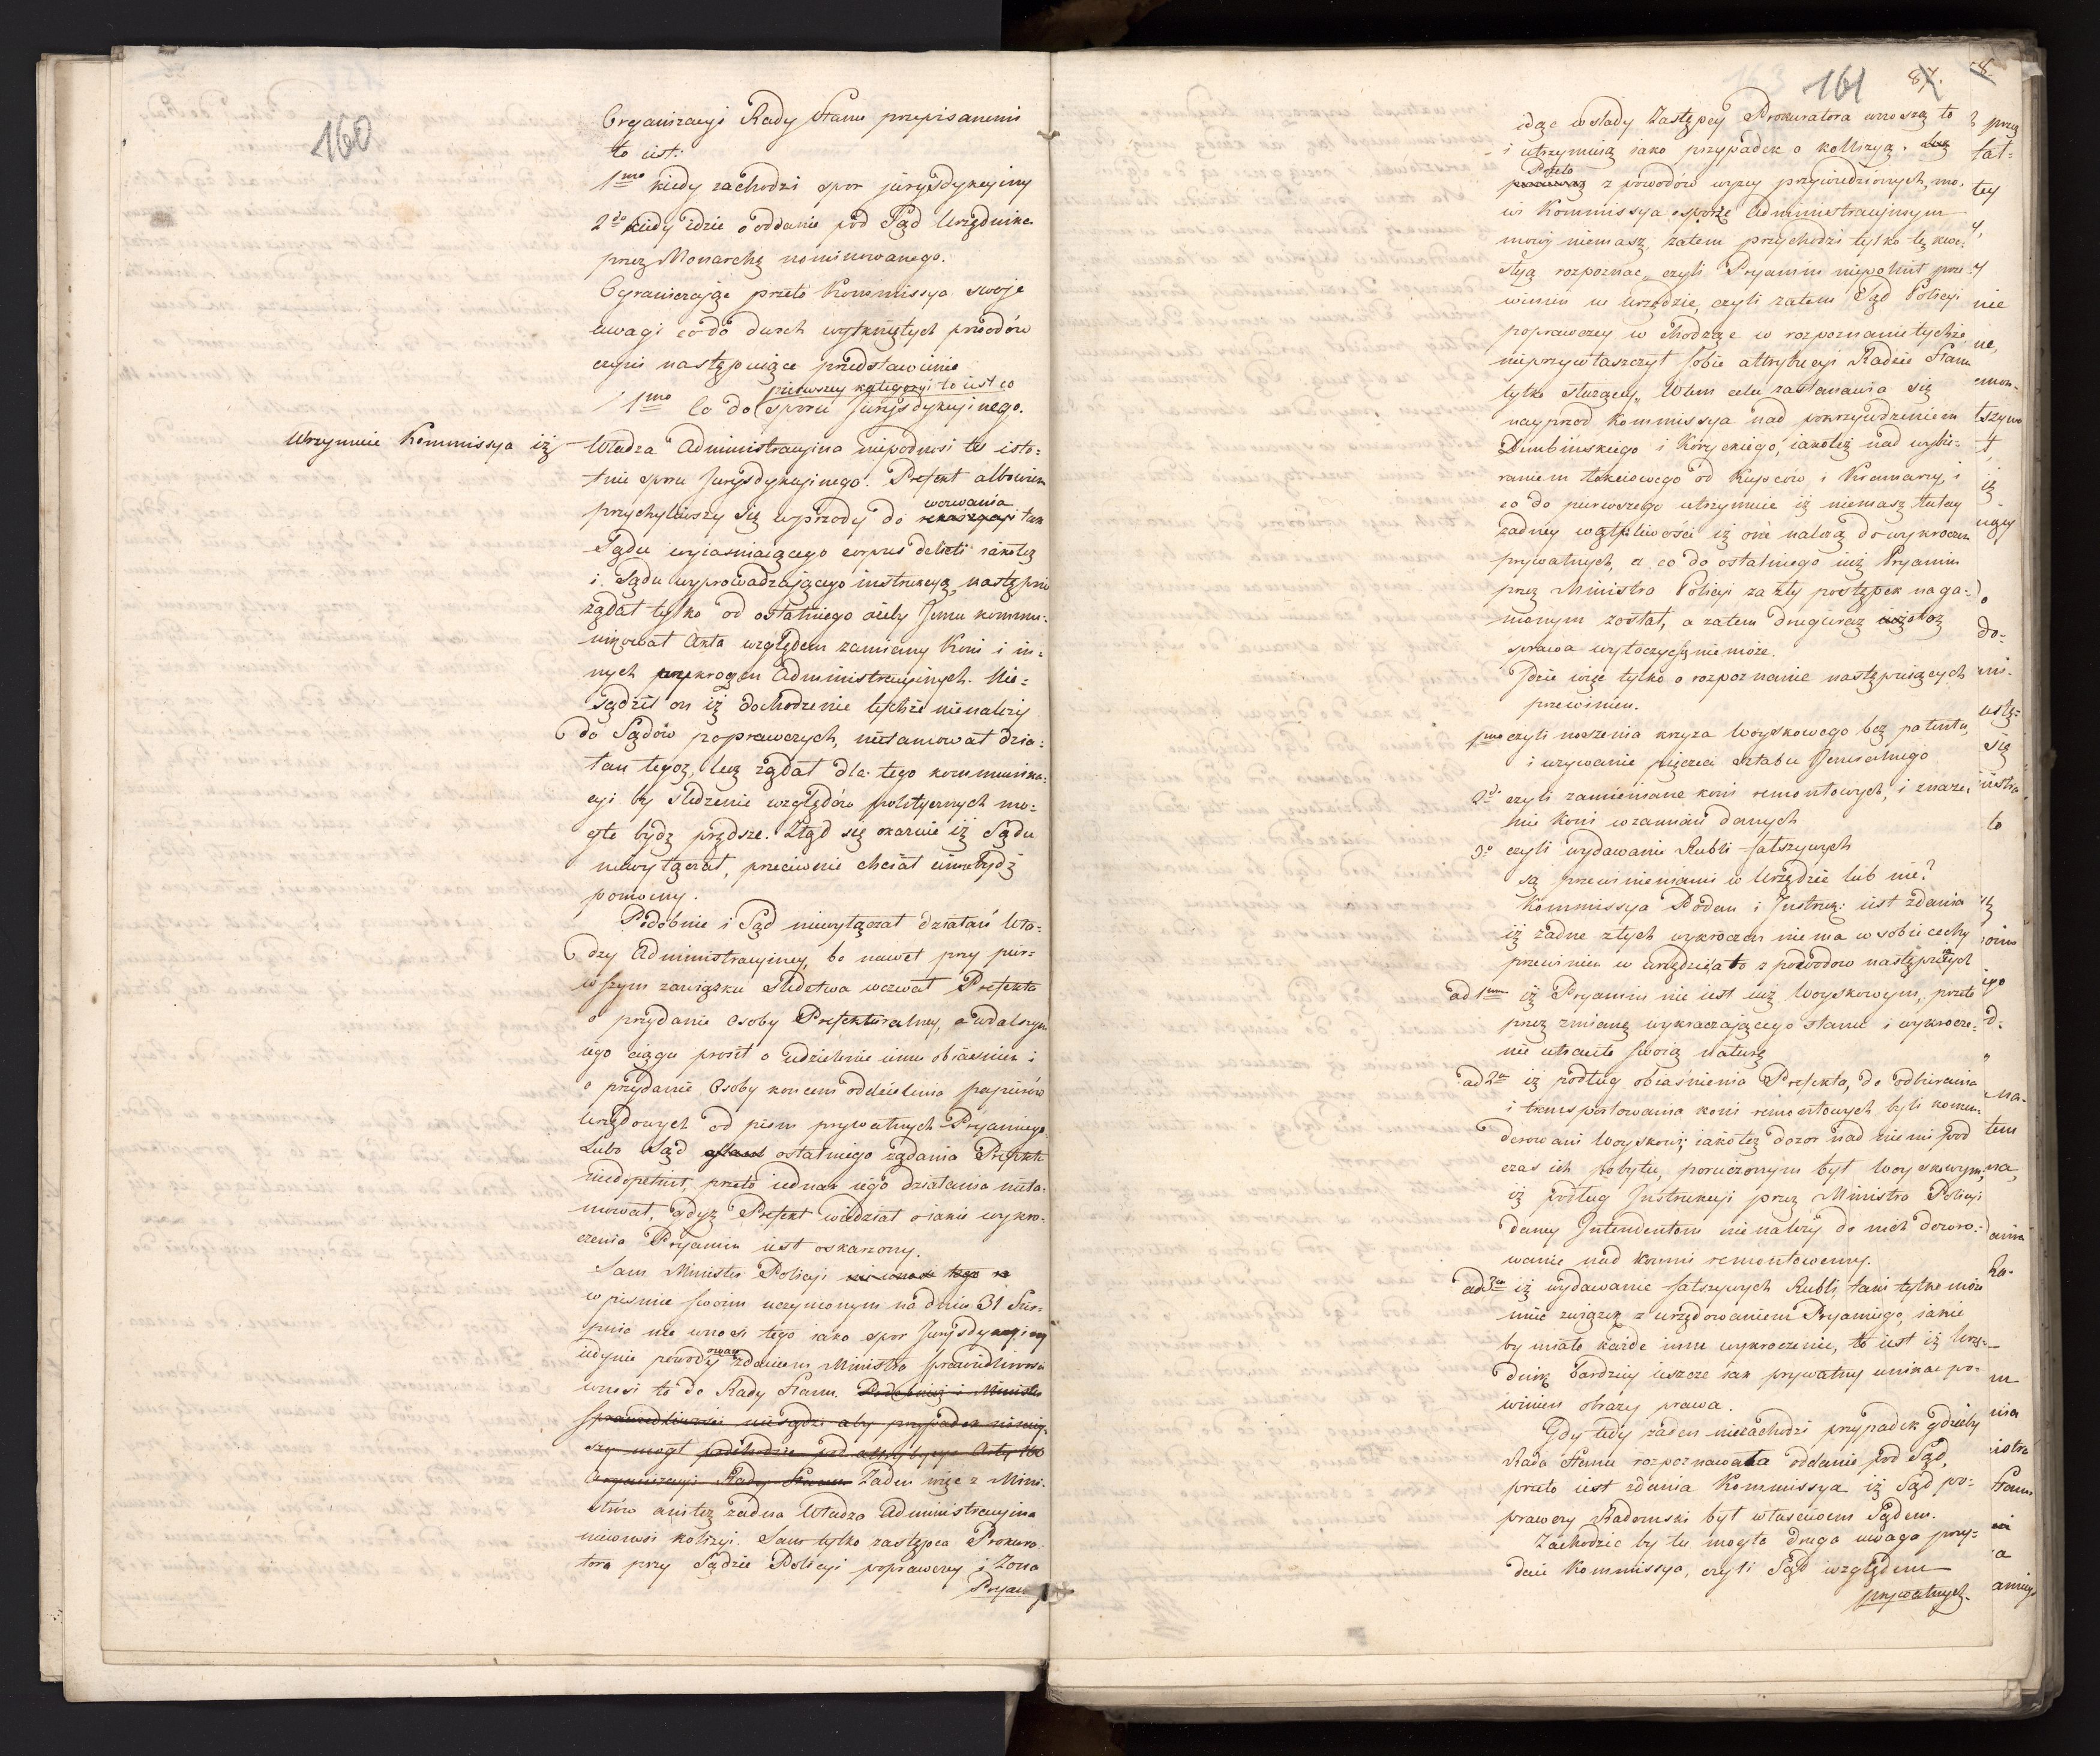 160
Organizacyi Rady Stanu przepisanemi
to iest:
1mo kiedy zachodzi spor jurysdykcyiny
2do kiedy idzie o oddanie pod Sąd Urzędnika
przez Monarchę nominowanego.
Ograniczaiąc przeto Kommissya swoje
uwagi co do dwóch wytkniętych powodów
czyni następuiące przedstawienie
pierwszey kategoryi to iest co
1mo Co do sporu Jurysdykcyjnego.
Utrzymuie Kommissya iż
Władza Administracyina niepodnosi tu isto-
tnie sporu Jurysdykcyjnego. Prefekt albowiem
wezwania
przychyliwszy się wprzódy do tak
Sądu wyiaśniaiącego corpus delicti iakoteż
i Sądu wyprowadzającego instrukcyą, następnie
żądał tylko od ostatniego ażeby Jemu kommu-
nikował Akta względem zamiany Koni i in-
nych wykroczen Administracyinych. Nie-
sądził on iż dochodzenie tychże nienależy
do Sądów poprawczych, nietamował dzia-
łan tegoż, lecz żądał dla tego kommunika-
cyi by śledzenie względów politycznych mo-
gło bydź prędsze. Ztąd się okazuie iż Sądu
niewyłączał, przeciwnie chciał iemu bydź
pomocny.
Podobnie i Sąd niewyłączał działań Wła-
dzy Administracyiney, bo nawet przy pier-
wszym zawiązku śledztwa wezwał Prefekta
o przydanie Osoby Prefekturalney, a w dalszym
iego ciągu prosił o udzielenie iemu obiaśnien i
o przydanie Osoby koncem oddzielenia papierów
Urzędowych od pism prywatnych Pryamiego.
Lubo Sąd ostatniego żądania Prefekta
niedopełnił, przeto iednak iego działania nieta-
mował, gdyż Prefekt wiedział o iakie wykro-
czenia Pryamin iest oskarzony.
Sam Minister Policyi nie wnosi tego
w pismie swoim uczynionym na dniu 31 Sier-
pnia nie wnosi tego iako spor Jurysdykcyiny
iedynie powodowany zdaniem Ministra Sprawiedliwości
wnosi to do Rady Stanu. Podobnież i Minister
Sprawiedliwości nie sądzi aby przypadek ninniey-
szy mogł podchodzić pod attrybucye
Organizacyi Rady Stanu Żaden więc z Mini-
strów ani też żadna Władza Administracyina
niewnosi kolizyi. Sam tylko zastępca Prokura-
tora przy Sądzie Policyi poprawczey i Żona
Pryam
161
87.
idąc w slady Zastępcy Prokuratora wnoszą to
i utrzymuią iako przypadek o kollizyą.
Przeto
z powodów wyżey przywiedzionych, mo-
wi Kommissya o sporze Administracyjnym
mowy niemasz, zatem przychodzi tylko tę kwe-
styą rozpoznac, czyli Pryamin niepełnił prze-
winien w Urzędzie, czyli zatem Sąd Policyi
poprawczey wchodząc w rozpoznanie tychże
nieprzywłaszczył sobie attrybucyi Radzie Stanu
tylko służącey. W tem celu zastanawia się
nayprzod Kommissya nad pokrzywdzeniem
Dembinskiego i Koryckiego, iakoteż nad wybie-
raniem łokciowego od Kupców i Kramarzy, i
co do pierwszego utrzymuie iż niemasz tutay
żadney wątpliwości iż one należą do wykroczen
prywatnych, a co do ostatniego iuż Pryamin
przez Ministra Policyi za zły postępek naga-
nionym został, a zatem drugi raz iuż o toż
sprawa wytoczyć się nie może.
Idzie więc tylko o rozpoznanie następuiących
przewinien.
1mo czyli noszenia krzyża Woyskowego bez patentu,
i używanie pięczeci Sztabu Jeneralnego
2do czyli zamieniane koni remontowych, i znacze-
nie Koni w zamian danych
3o czyli wydawanie Rubli fałszywych
są przewinieniami w Urzędzie lub nie?
Kommissya Podan i Instruk: iest zdania
iż żadne z tych wykroczen nie ma w sobie cechy
przewinien w urzędzie, a to z powodow następuiących
ad 1mum iż Pryamin nie iest iuż Woyskowym, przeto
przez zmianę wykraczającego stanu i wykrocze-
nie utraciło swoią naturę
ad 2um iż podług obiaśnienia Prefekta, do odbierania
i transportowania koni remontowych byli komen-
derowani Woyskowi, iakoteż dozor nad niemi pod
czas ich pobytu, poruczonym był Woyskowym,
iż podług Instrukcyi przez Ministra Policyi
daney Intendentom nie należy do nich dozoro-
wanie nad Końmi remontowemi.
ad 3um iż wydawanie fałszywych Rubli, taki tylko może
mieć związek z urzędowaniem Pryamiego, iakie
by miało każde inne wykroczenie, to iest iż Urzę-
dnik bardziey ieszcze iak prywatny unikac po-
winien obrazy prawa.
Gdy tedy żaden niezachodzi przypadek gdzieby
Rada Stanu rozpoznawała oddanie pod Sąd,
przeto iest zdania Kommissya iż Sąd po-
prawczy Radomski był właściwem Sądem.
Zachodzić by tu mogła druga uwaga przy-
daie Kommissya, czyli Sąd względem
prywatnych.